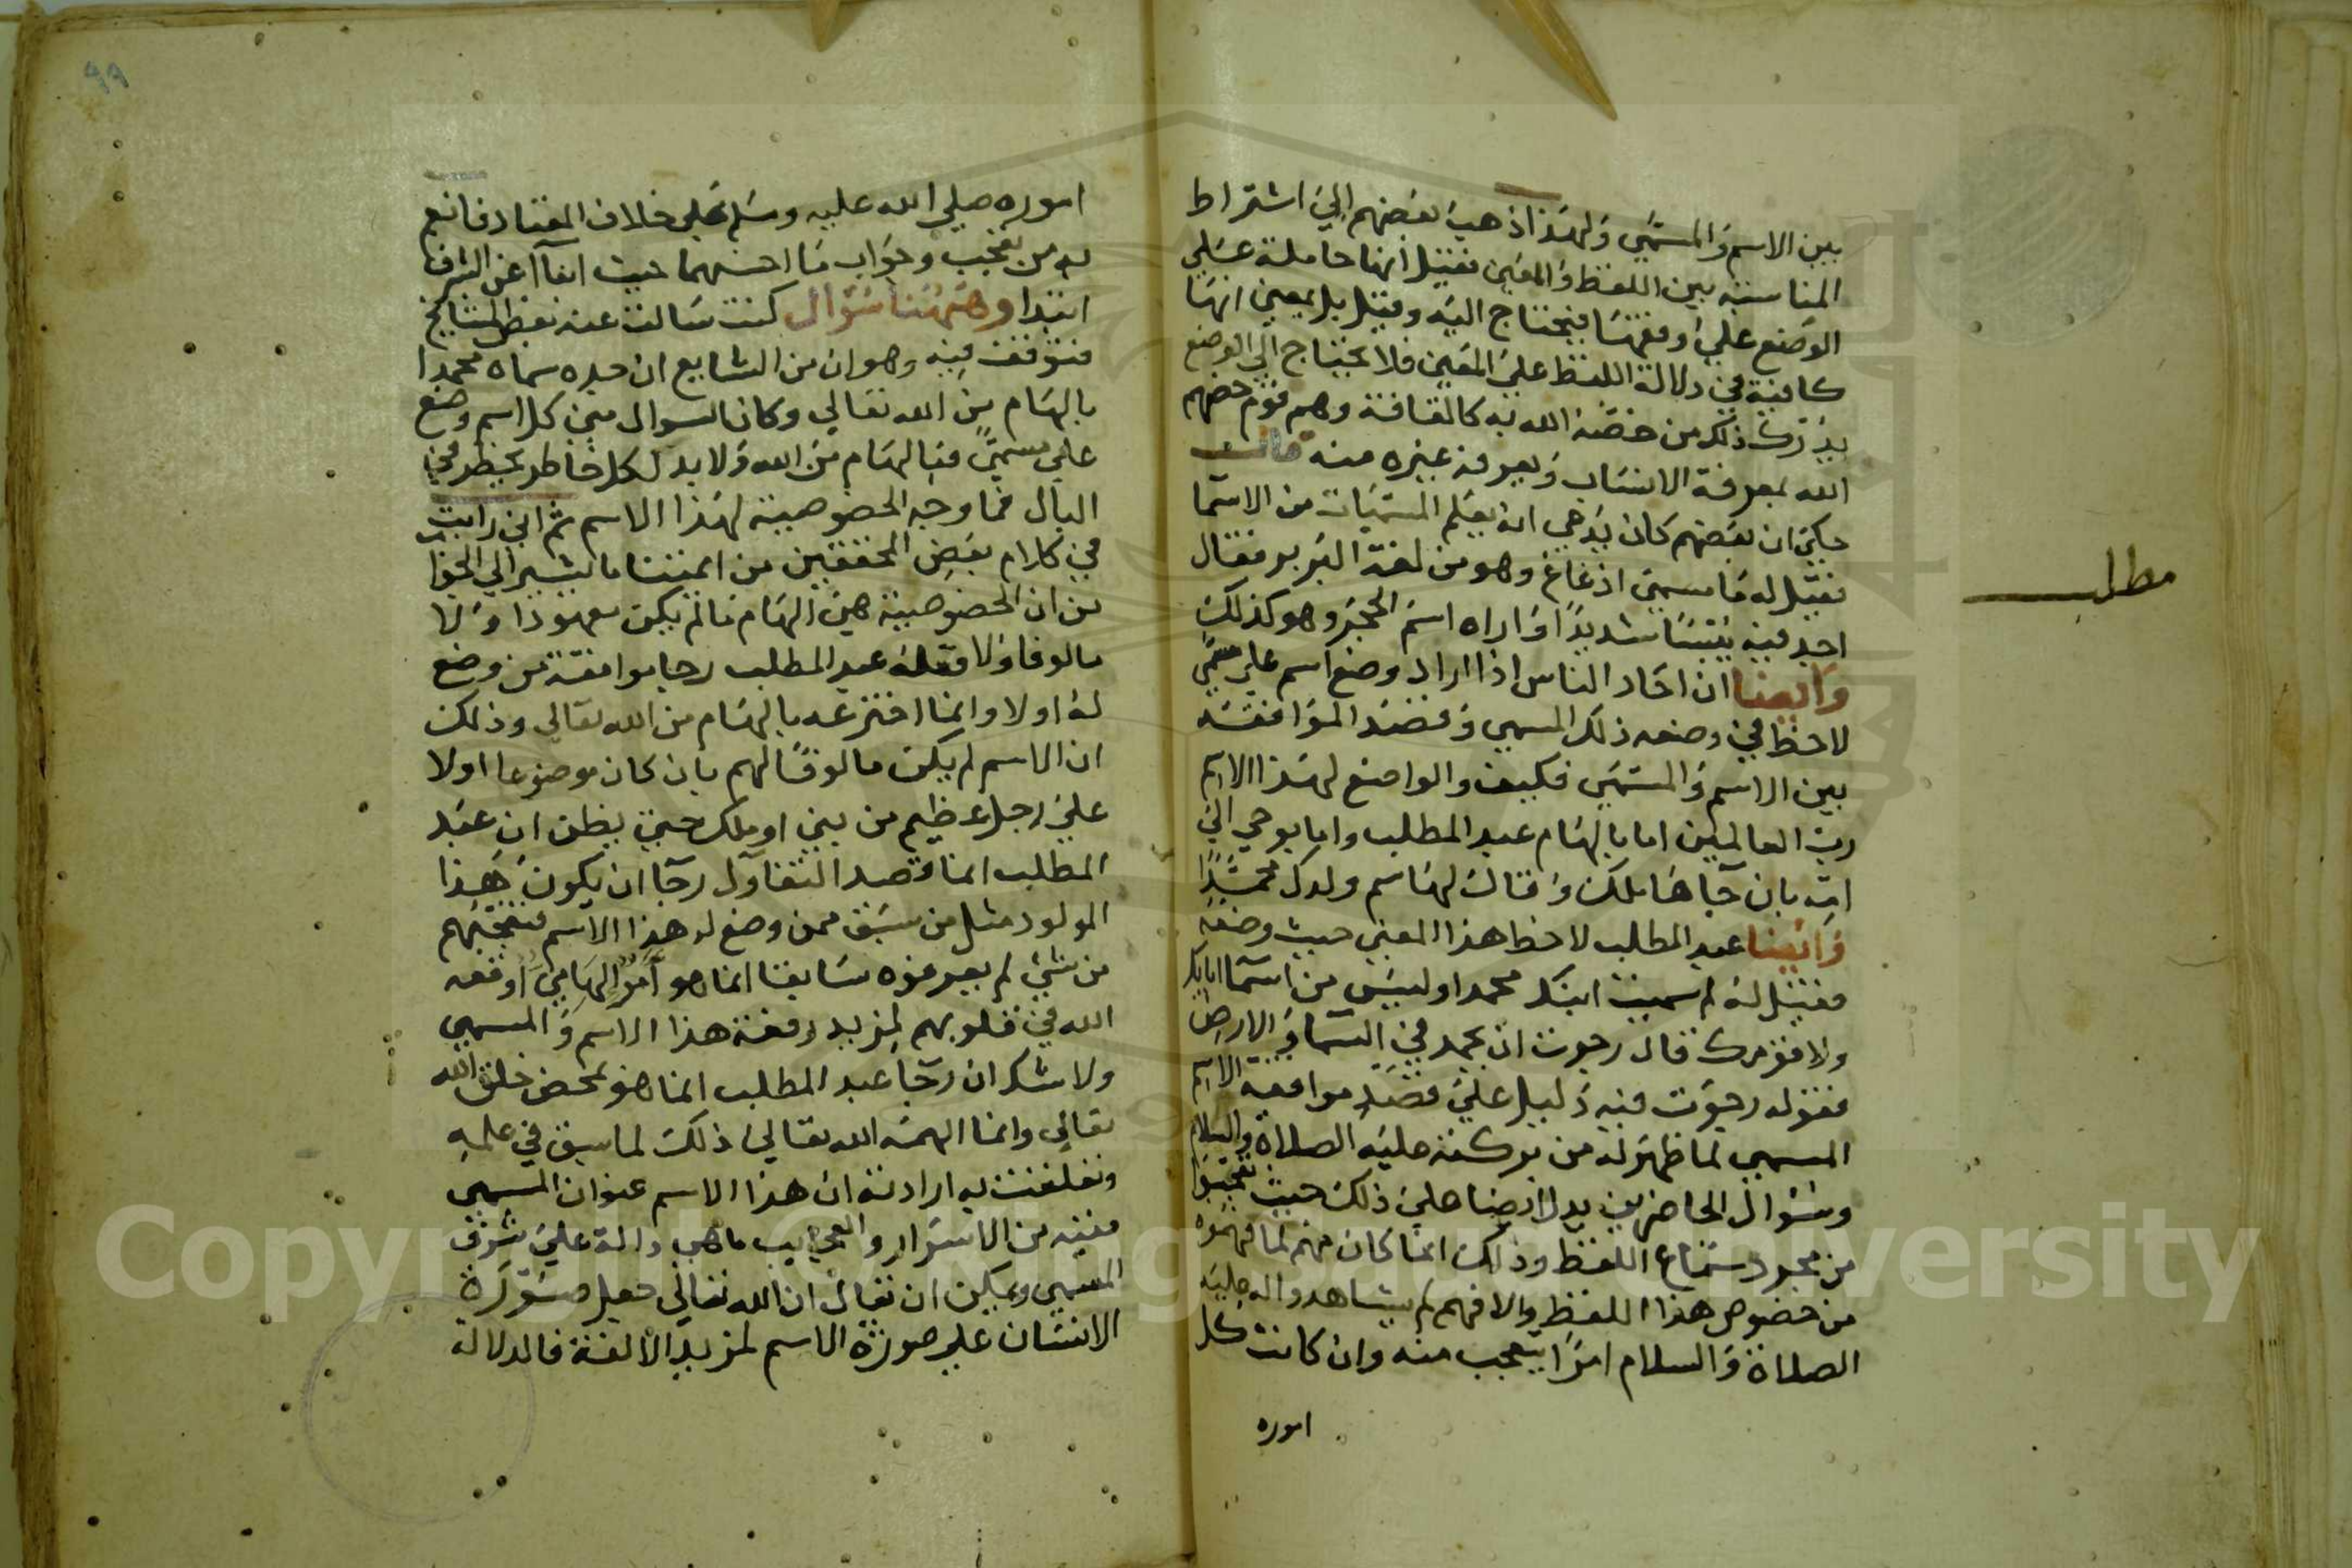 بين الاسم والمسمى ولهذا ذهب بعضهم الي اشتراط
المناسبة بين اللفظ والمعين فقيل انها حاملة علي
الوضع علي وفقها فيحتاج اليه وقيل بل بمعين انها
كافية في دلالة اللفظ علي المعين فلا يحتاج الي الوضع
يدرك ذلك من خصه الله به كالقافة وهم قوم خصهم
الله بمعرفة الانساب ويعرفه غيره منه
حكي ان بعضهم كان يدعي انه يعلم المسميات من الاسما
فقيل له ما مسمي اذغاغ وهو من لغة البربر فقال
اجد فيه يبسا شديدا واراه اسم الحجر وهو كذلك
وايضا ان احاد الناس اذا اراد وضع اسم علي مسمي
لاحظ في وضعه ذلك المسمي وقصد الموافقة
بين الاسم والمسمي فكيف والواضع لهذا الاسم
رب العالمين اما بالهام عبد المطلب واما بوحي الي
امه بان جاها ملك وقال لها سم ولدك محمدا
وايضا عبد المطلب لاحظ هذا المعني حيث وضعه
فقيل له لم سميت ابنك محمدا وليس من اسما ابايك
ولا قومك قال رجوت ان يحمد في السما والارض
فقوله رجوت فيه دليل علي قصد موافقة الاسم
المسمي لما ظهر له من بركته عليه الصلاة والسلام
وسوال الحاضرين يدل ايضا علي ذلك حيث تعجبوا
من مجرد سماع اللفظ وذلك انما كان منهم لما فهموه
من خصوص هذا اللفظ والا فهم لم يشاهدوا له عليه
الصلاة والسلام امرا يتعجب منه وان كانت كل
اموره
مطلب
٩٩
اموره صلي الله عليه وسلم علي خلاف المعتاد فانعم
به من تعجب وجواب ما احسنهما حيث انباا عن الشرف
ابتدا وههنا سوال كنت سالت عنه بعض المشايخ
فتوقف فيه وهو ان من الشايع ان جده سماه محمدا
بالهام من الله تعالي وكان السوال مبني كل اسم وضع
علي مسمى فبالهام من الله ولا بد لكل خاطر يخطر في
البال فما وجه الخصوصية لهذا الاسم ثم اني رايت
في كلام بعض المحققين من ايمتنا ما يشير الي الجواب
من ان الخصوصية هي الهام ما لم يكن معهودا ولا
مالوفا ولا فعله عبد المطلب رجا موافقة من وضع
له اولا وانما اخترعه بالهام من الله تعالي وذلك
ان الاسم لم يكن مالوفا لهم بان كان موضوعا اولا
علي رجل عظيم من نبي او ملك حتي يظن ان عبد
المطلب انما قصد التفاول رجا ان يكون هذا
المولود مثل من سبق ممن وضع له هذا الاسم فتعجبهم
من شي لم يعرفوه سابقا انما هو امر الهامي اوقعه
الله في قلوبهم لمزيد رفعة هذا الاسم والمسمي
ولا شك ان رجا عبد المطلب انما هو بمحض خلق الله
تعالي وانما الهمه الله تعالي ذلك لما سبق في علمه
وتعلقت به ارادته ان هذا الاسم عنوان المسمي
ففيه من الاسرار والعجايب ما هي دالة علي شرف
المسمي ويمكن ان يقال ان الله تعالي جعل صورة
الانسان علي صورة الاسم لمزيد الالفة فالدلالة
Copyright © King Saud University